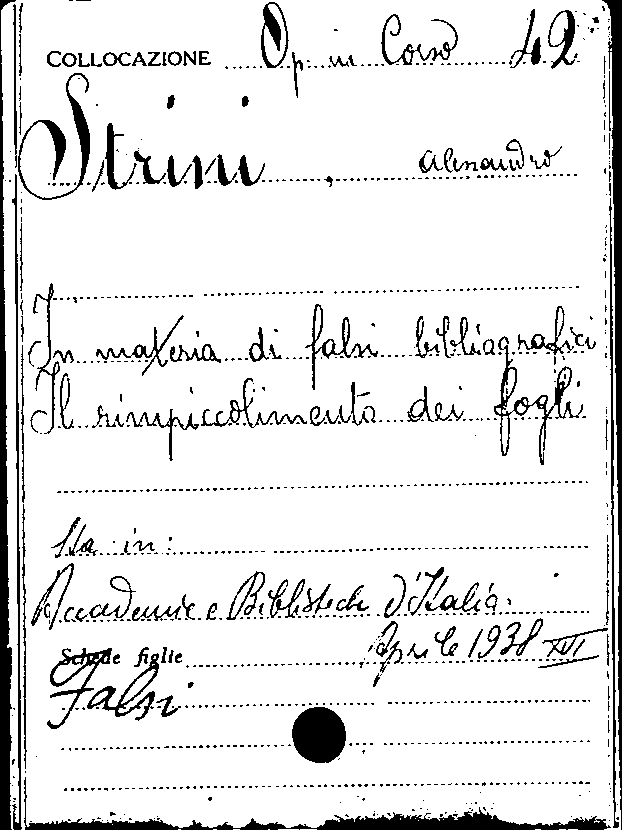 COLLOCAZIONE Op. in Corso 42
Strini, Alessandro
In materia di falsi bibliografici
Il rimpiccolimento dei fogli
Sta in:
Accademie e Biblioteche d'Italia.
Aprile 1938 XVI
Schede figlie
Falsi